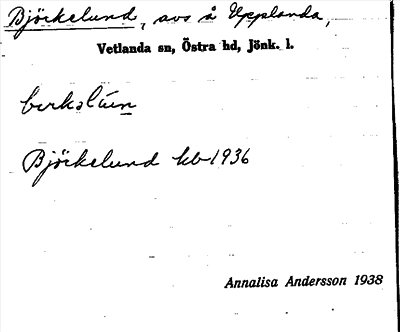 Björkelund, avs å Upplanda,
Vetlanda sn, Östra hd, Jönk. l.
Björkelund kb 1936
Annalisa Andersson 1938